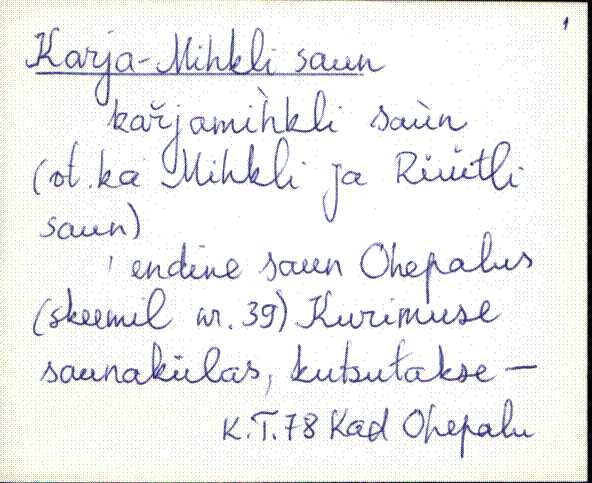 1
Karja-Mihkli saun
kaŕjamìhkli saùn
(vt. ka Mihkli ja Rüütli
saun)
endine saun Ohepalus
(skeemil nr. 39) Kurimuse
saunakülas, kutsutakse —
K.T.78 Kad Ohepalu